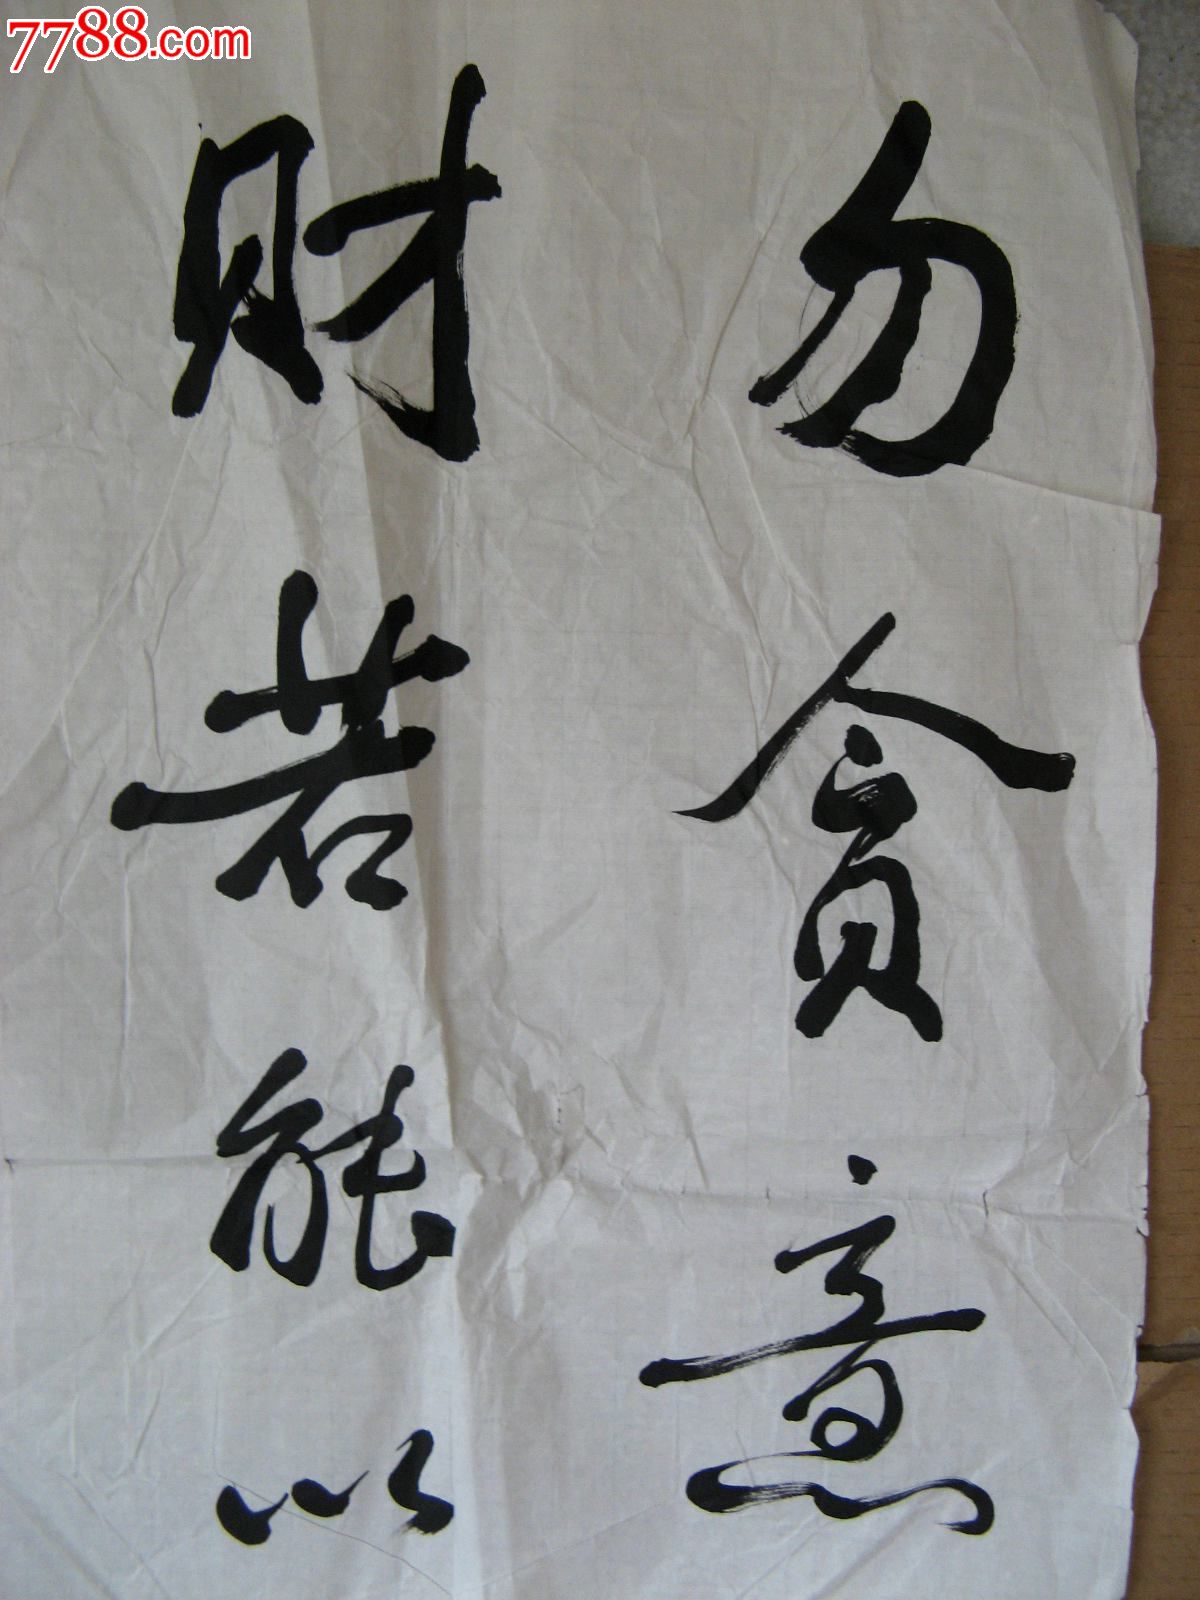 7788.com
勿貪意
财若能以